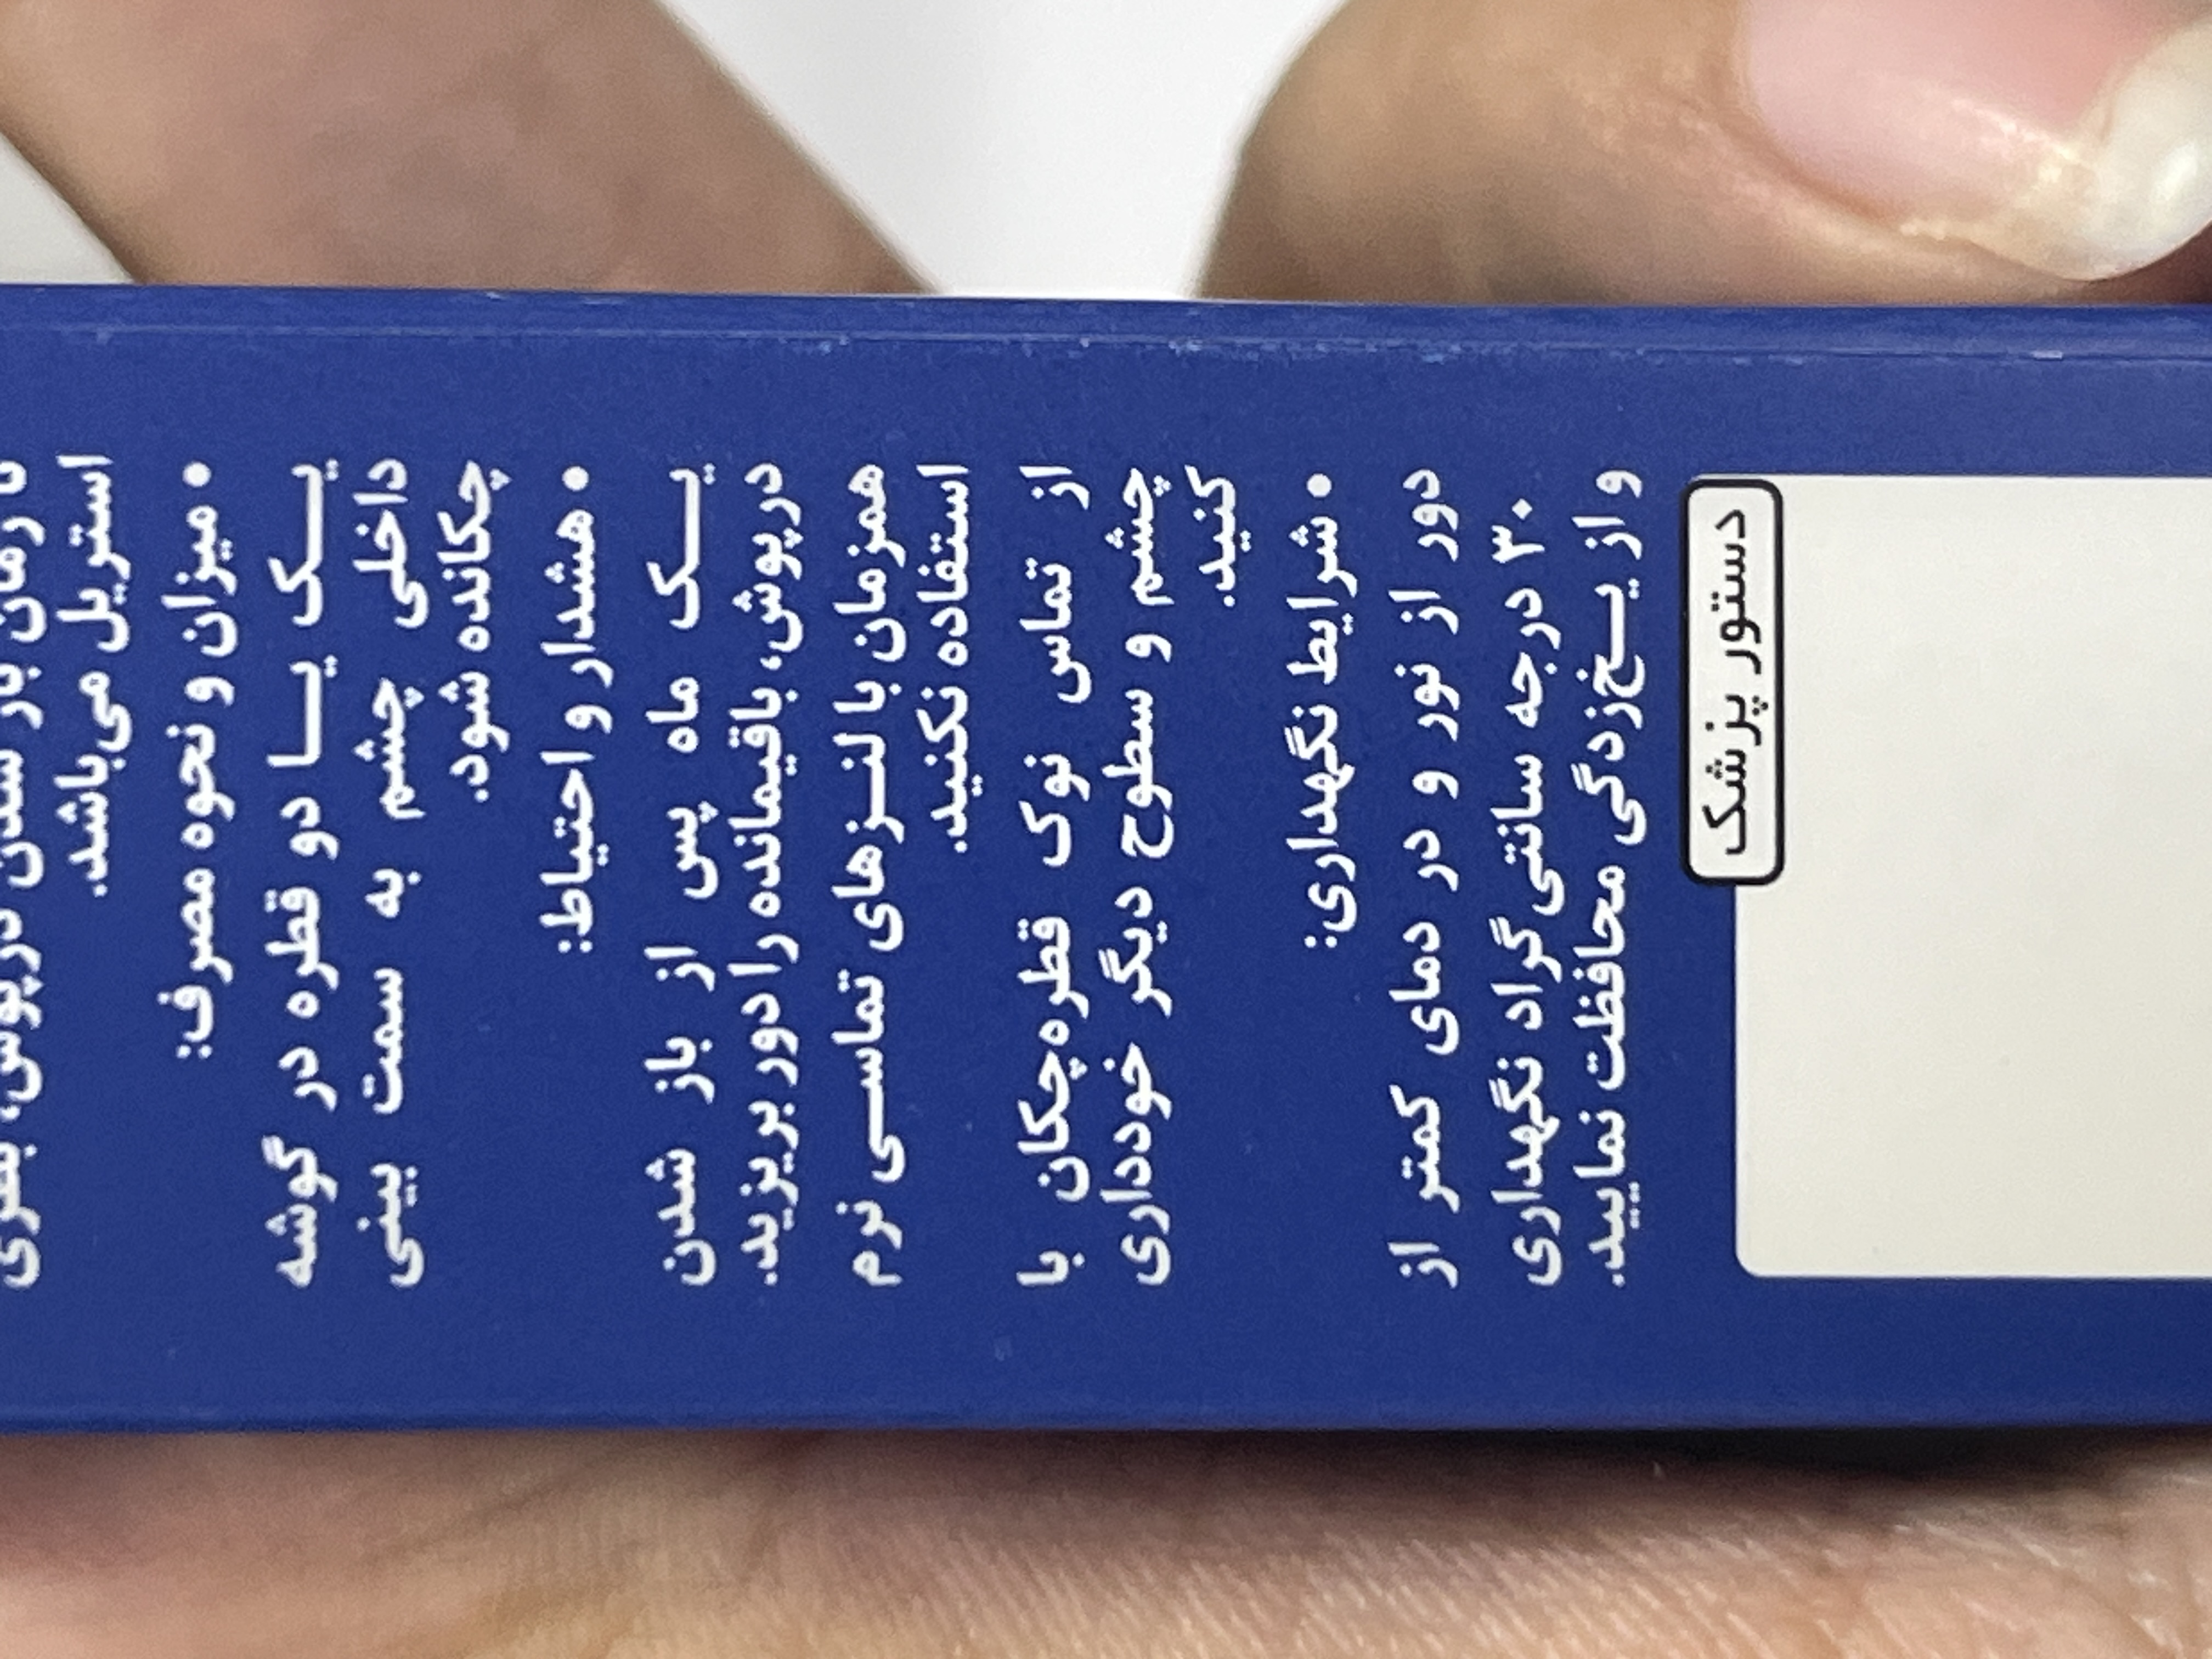 تا زمان باز شدن درپوش، بطری
استریل می‌باشد.
• میزان و نحوه مصرف:
یک یا دو قطره در گوشه
داخلی چشم به سمت بینی
چکانده شود.
• هشدار و احتیاط:
یک ماه پس از باز شدن
درپوش، باقیمانده را دور بریزید.
همزمان با لنزهای تماسی نرم
استفاده نکنید.
از تماس نوک قطره‌چکان با
چشم و سطوح دیگر خودداری
کنید.
• شرایط نگهداری:
دور از نور و در دمای کمتر از
۳۰ درجه سانتی‌گراد نگهداری
و از یخ‌زدگی محافظت نمایید.
دستور پزشک